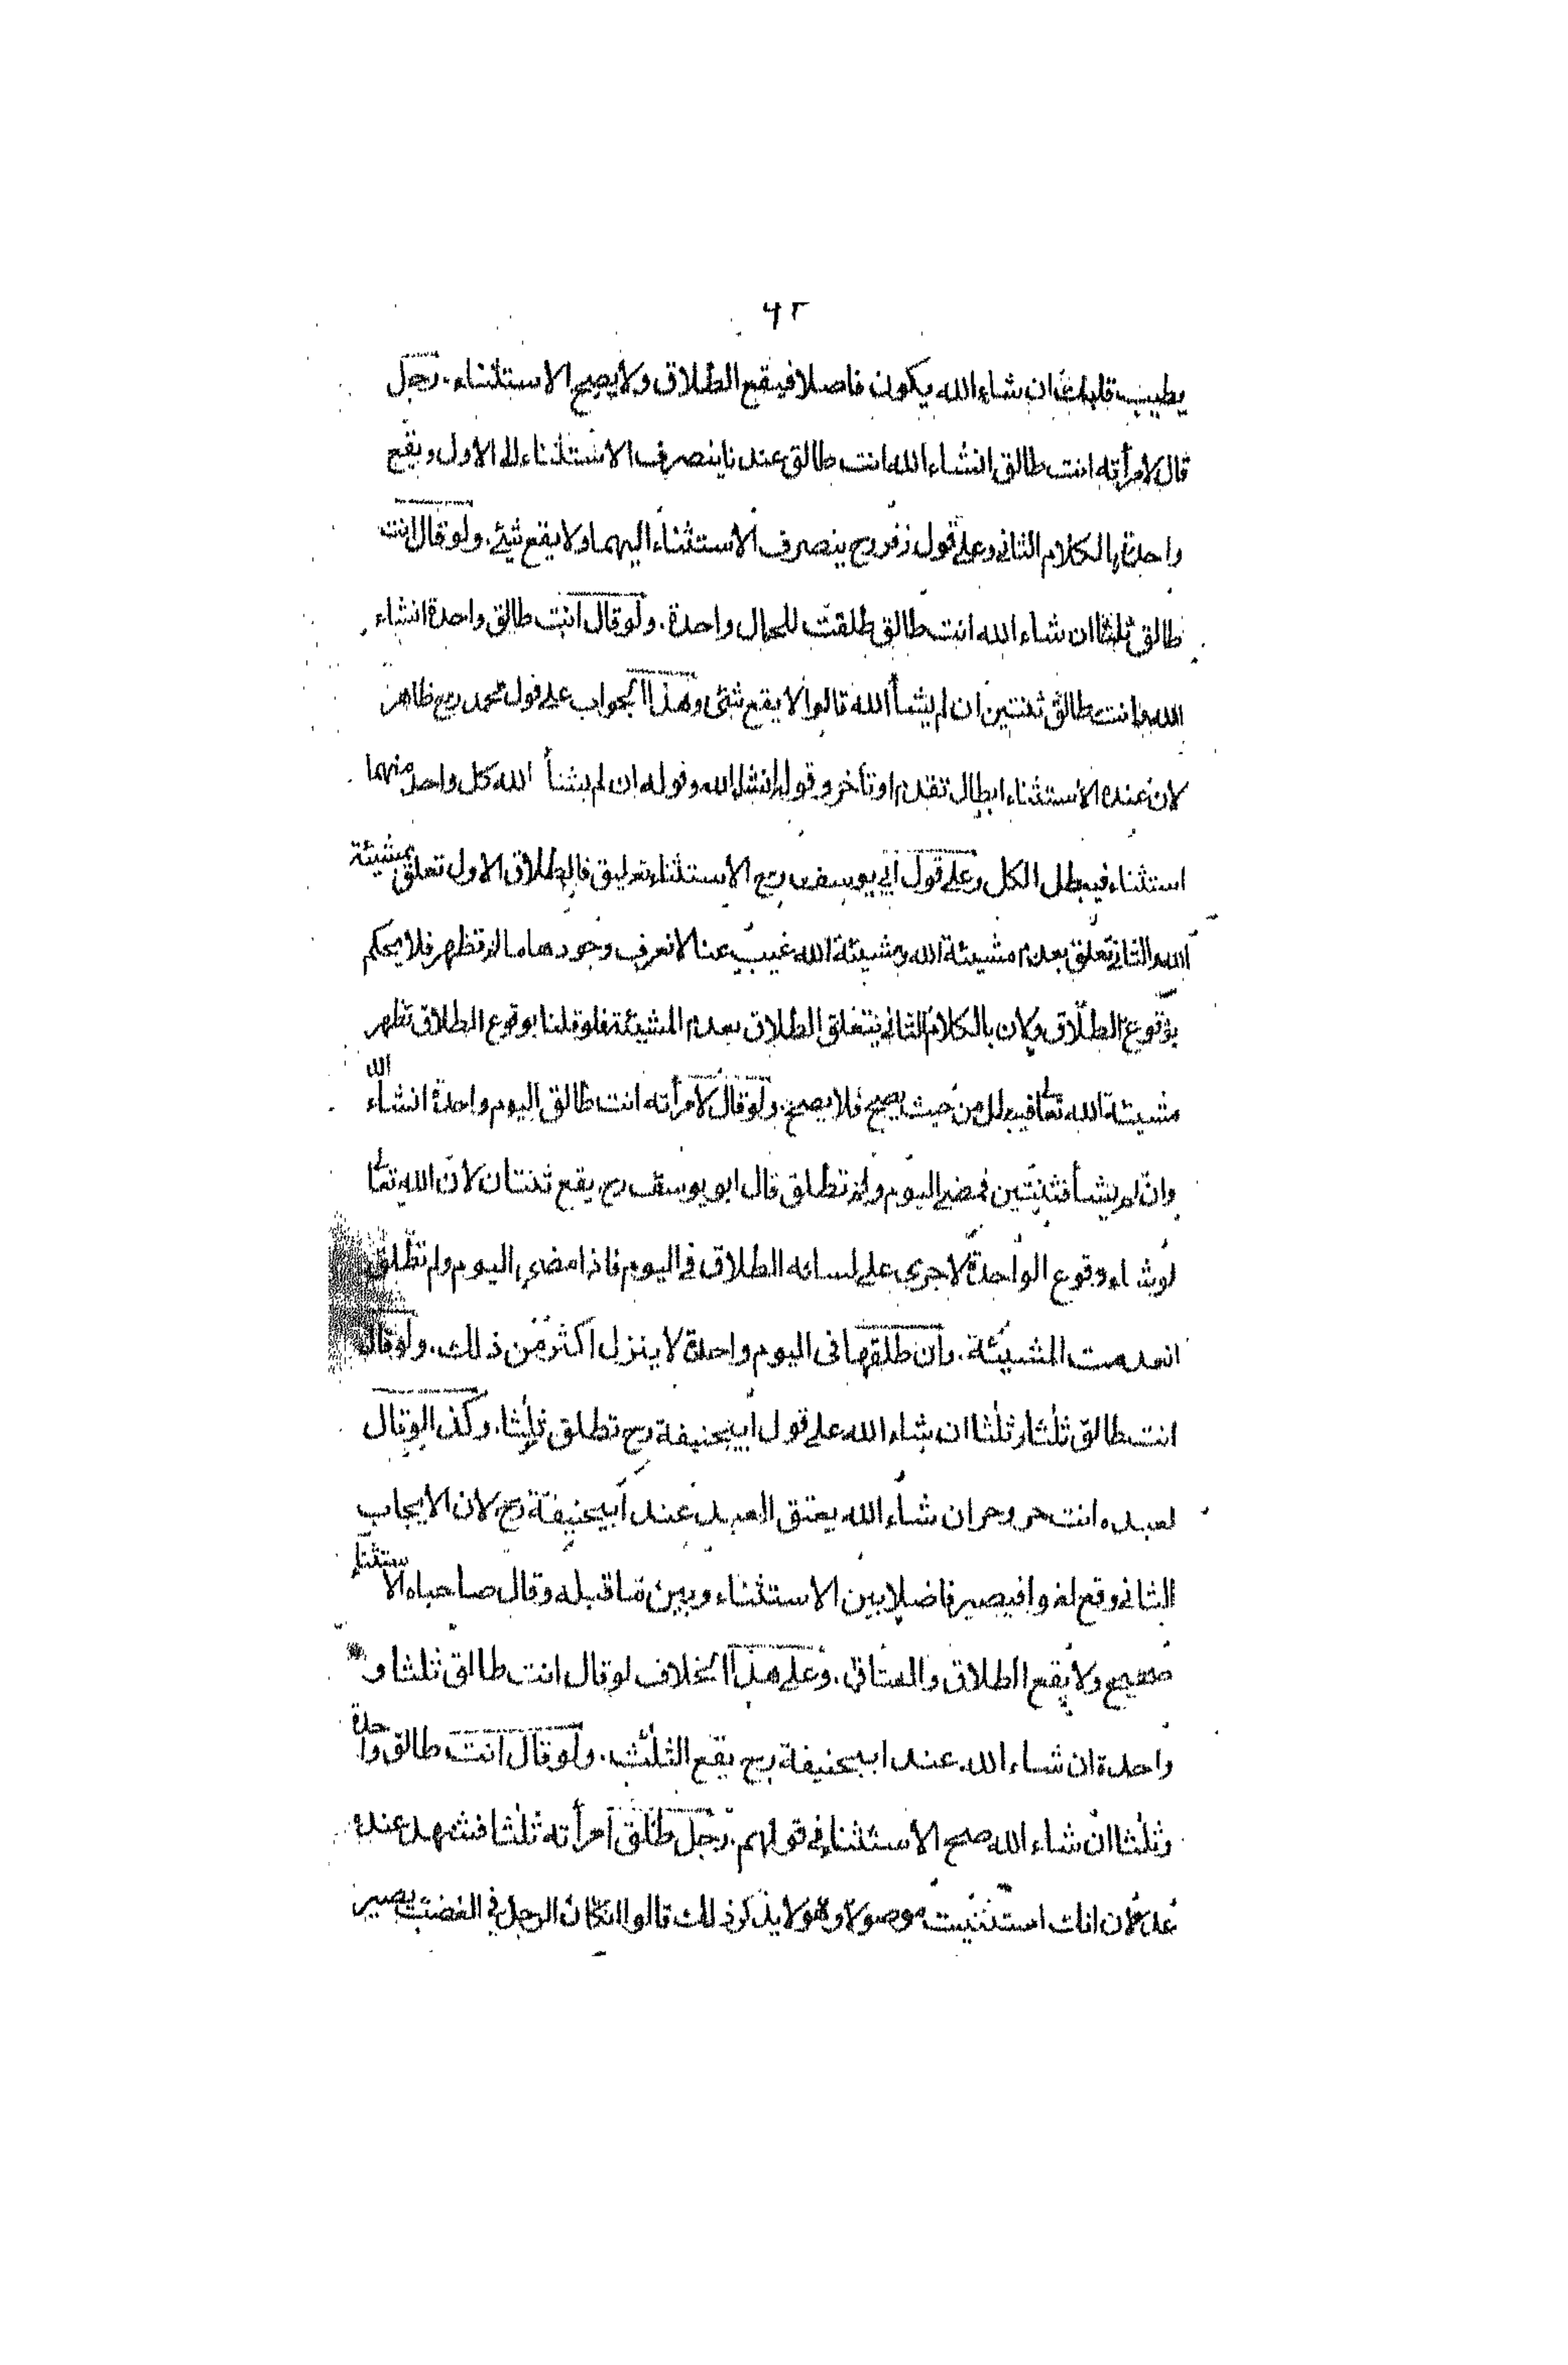 ٤٢
يطيب قلبك ان شاء الله يكون فاصلا فيقع الطلاق ولا يصح الاستثناء . رجل
قال لامرأته انت طالق انشاء الله انت طالق عندنا ينصرف الاستثناء الى الاول ويقع
واحدة بالكلام الثاني وعلى قول زفر رح ينصرف الاستثناء اليهما ولا يقع شيئ . ولو قال انت
طالق ثلثا ان شاء الله انت طالق طلقت للحال واحدة . ولو قال انت طالق واحدة انشاء
الله وانت طالق ثنتين ان لم يشأ الله قالوا لا يقع شئ وهذا الجواب على قول محمد رح ظاهر
لان عنده الاستثناء ابطال تقدم او تأخر وقوله انشاء الله وقوله ان لم يشأ الله كل واحد منهما
استثناء فيبطل الكل وعلى قول ابي يوسف رح الاستثناء تعليق فالطلاق الاول تعلق بمشيئة
الله والثاني تعلق بعدم مشيئة الله ومشيئة الله غيب عنا لا نعرف وجودها ما لم تظهر فلا يحكم
بوقوع الطلاق ولان بالكلام الثاني يتعلق الطلاق بعدم المشيئة فلو قلنا بوقوع الطلاق تظهر
مشيئة الله تعالى فيبطل من حيث يصح فلا يصح . ولو قال لامرأته انت طالق اليوم واحدة انشاء الله
وان لم يشأ فثنتين فمضى اليوم ولم تطلق قال ابو يوسف رح يقع ثنتان لان الله تعالى
لو شاء وقوع الواحدة لاجرى على لسانه الطلاق في اليوم فاذا مضى اليوم ولم تطلق
انعدمت المشيئة . وان طلقها فى اليوم واحدة لا ينزل اكثر من ذلك . ولو قال
انت طالق ثلثا وثلثا ان شاء الله على قول ابيحنيفة رح تطلق ثلثا . وكذا لو قال
لعبده انت حر وحر ان شاء الله يعتق العبد عند ابيحنيفة رح لان الايجاب
الثاني وقع لغوا فيصير فاصلا بين الاستثناء وبين ما قبله وقال صاحباه الاستثناء
صحيح ولا يقع الطلاق والعتاق . وعلى هذا الخلاف لو قال انت طالق ثلثا و
واحدة ان شاء الله عند ابيحنيفة رح يقع الثلث . ولو قال انت طالق واحدة
وثلثا ان شاء الله صح الاستثناء في قولهم . رجل طلق امرأته ثلثا فشهد عنده
عدلان انك استثنيت موصولا وهو لا يذكر ذلك قالوا انكان الرجل في الغضب يصير